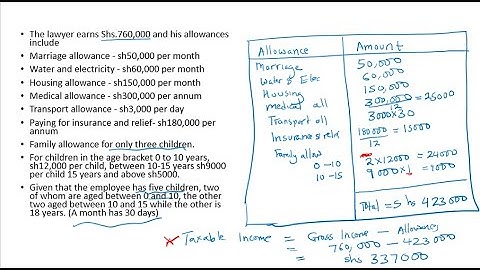 • The lawyer earns Shs.760,000 and his allowances
include
• Marriage allowance - sh50,000 per month
• Water and electricity - sh60,000 per month
• Housing allowance - sh150,000 per month
• Medical allowance - sh300,000 per annum
• Transport allowance - sh3,000 per day
• Paying for insurance and relief- sh180,000 per
annum
• Family allowance for only three children.
• For children in the age bracket 0 to 10 years,
sh12,000 per child, between 10-15 years sh9000
per child 15 years and above sh5000.
• Given that the employee has five children, two
of whom are aged between 0 and 10, the other
two aged between 10 and 15 while the other is
18 years. (A month has 30 days)
Allowance Amount
Marriage 50,000
Water & Elec 60,000
Housing 150,000
medical all 300,000/12 = 25000
Transport all 3000x30
Insurance & relief 180000/12 = 15000
Family allow
0 - 10 2x12000 = 24000
10 - 15 9000x1 = 9000
Total = Shs 423000
x Taxable Income = Gross Income - Allowances
= 760,000 - 423000
= shs 337000